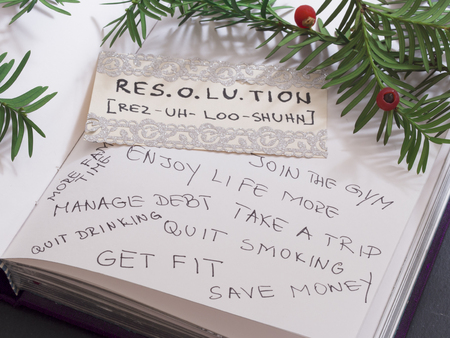 RES.O.LU.TION
[REZ-UH-LOO-SHUHN]
MORE FAM
TIME
ENJOY LIFE MORE
JOIN THE GYM
MANAGE DEBT
TAKE A TRIP
QUIT DRINKING
QUIT SMOKING
GET FIT
SAVE MONEY